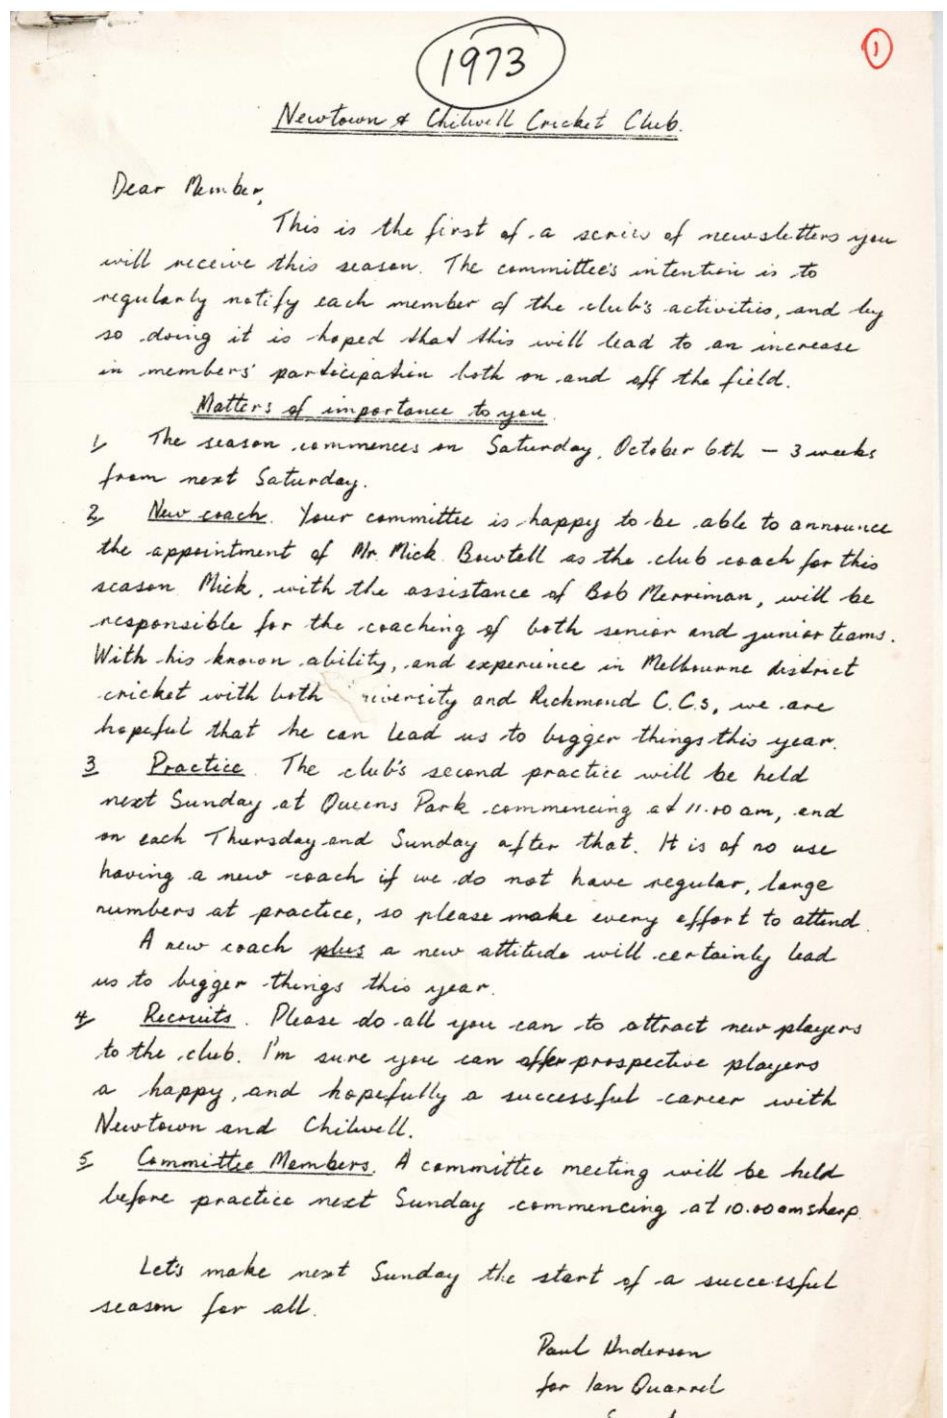 1973
1
Newtown & Chilwell Cricket Club.
Dear Member,
This is the first of a series of newsletters you
will receive this season. The committee's intention is to
regularly notify each member of the club's activities, and by
so doing it is hoped that this will lead to an increase
in members' participation both on and off the field.
Matters of importance to you.
1, The season commences on Saturday, October 6th – 3 weeks
from next Saturday.
2, New coach. Your committee is happy to be able to announce
the appointment of Mr. Mick Bowtell as the club coach for this
season. Mick, with the assistance of Bob Merriman, will be
responsible for the coaching of both senior and junior teams.
With his known ability, and experience in Melbourne district
cricket with both iversity and Richmond C.C.s, we are
hopeful that he can lead us to bigger things this year.
3 Practice. The club's second practice will be held
next Sunday at Queens Park commencing at 11.00 am, and
on each Thursday and Sunday after that. It is of no use
having a new coach if we do not have regular, large
numbers at practice, so please make every effort to attend.
A new coach plus a new attitude will certainly lead
us to bigger things this year.
4, Recruits. Please do all you can to attract new players
to the club. I'm sure you can offer prospective players
a happy, and hopefully a successful career with
Newtown and Chilwell.
5 Committee Members. A committee meeting will be held
before practice next Sunday commencing at 10.00 am sharp.
Let's make next Sunday the start of a successful
season for all.
Paul Anderson
for Ian Quarrel